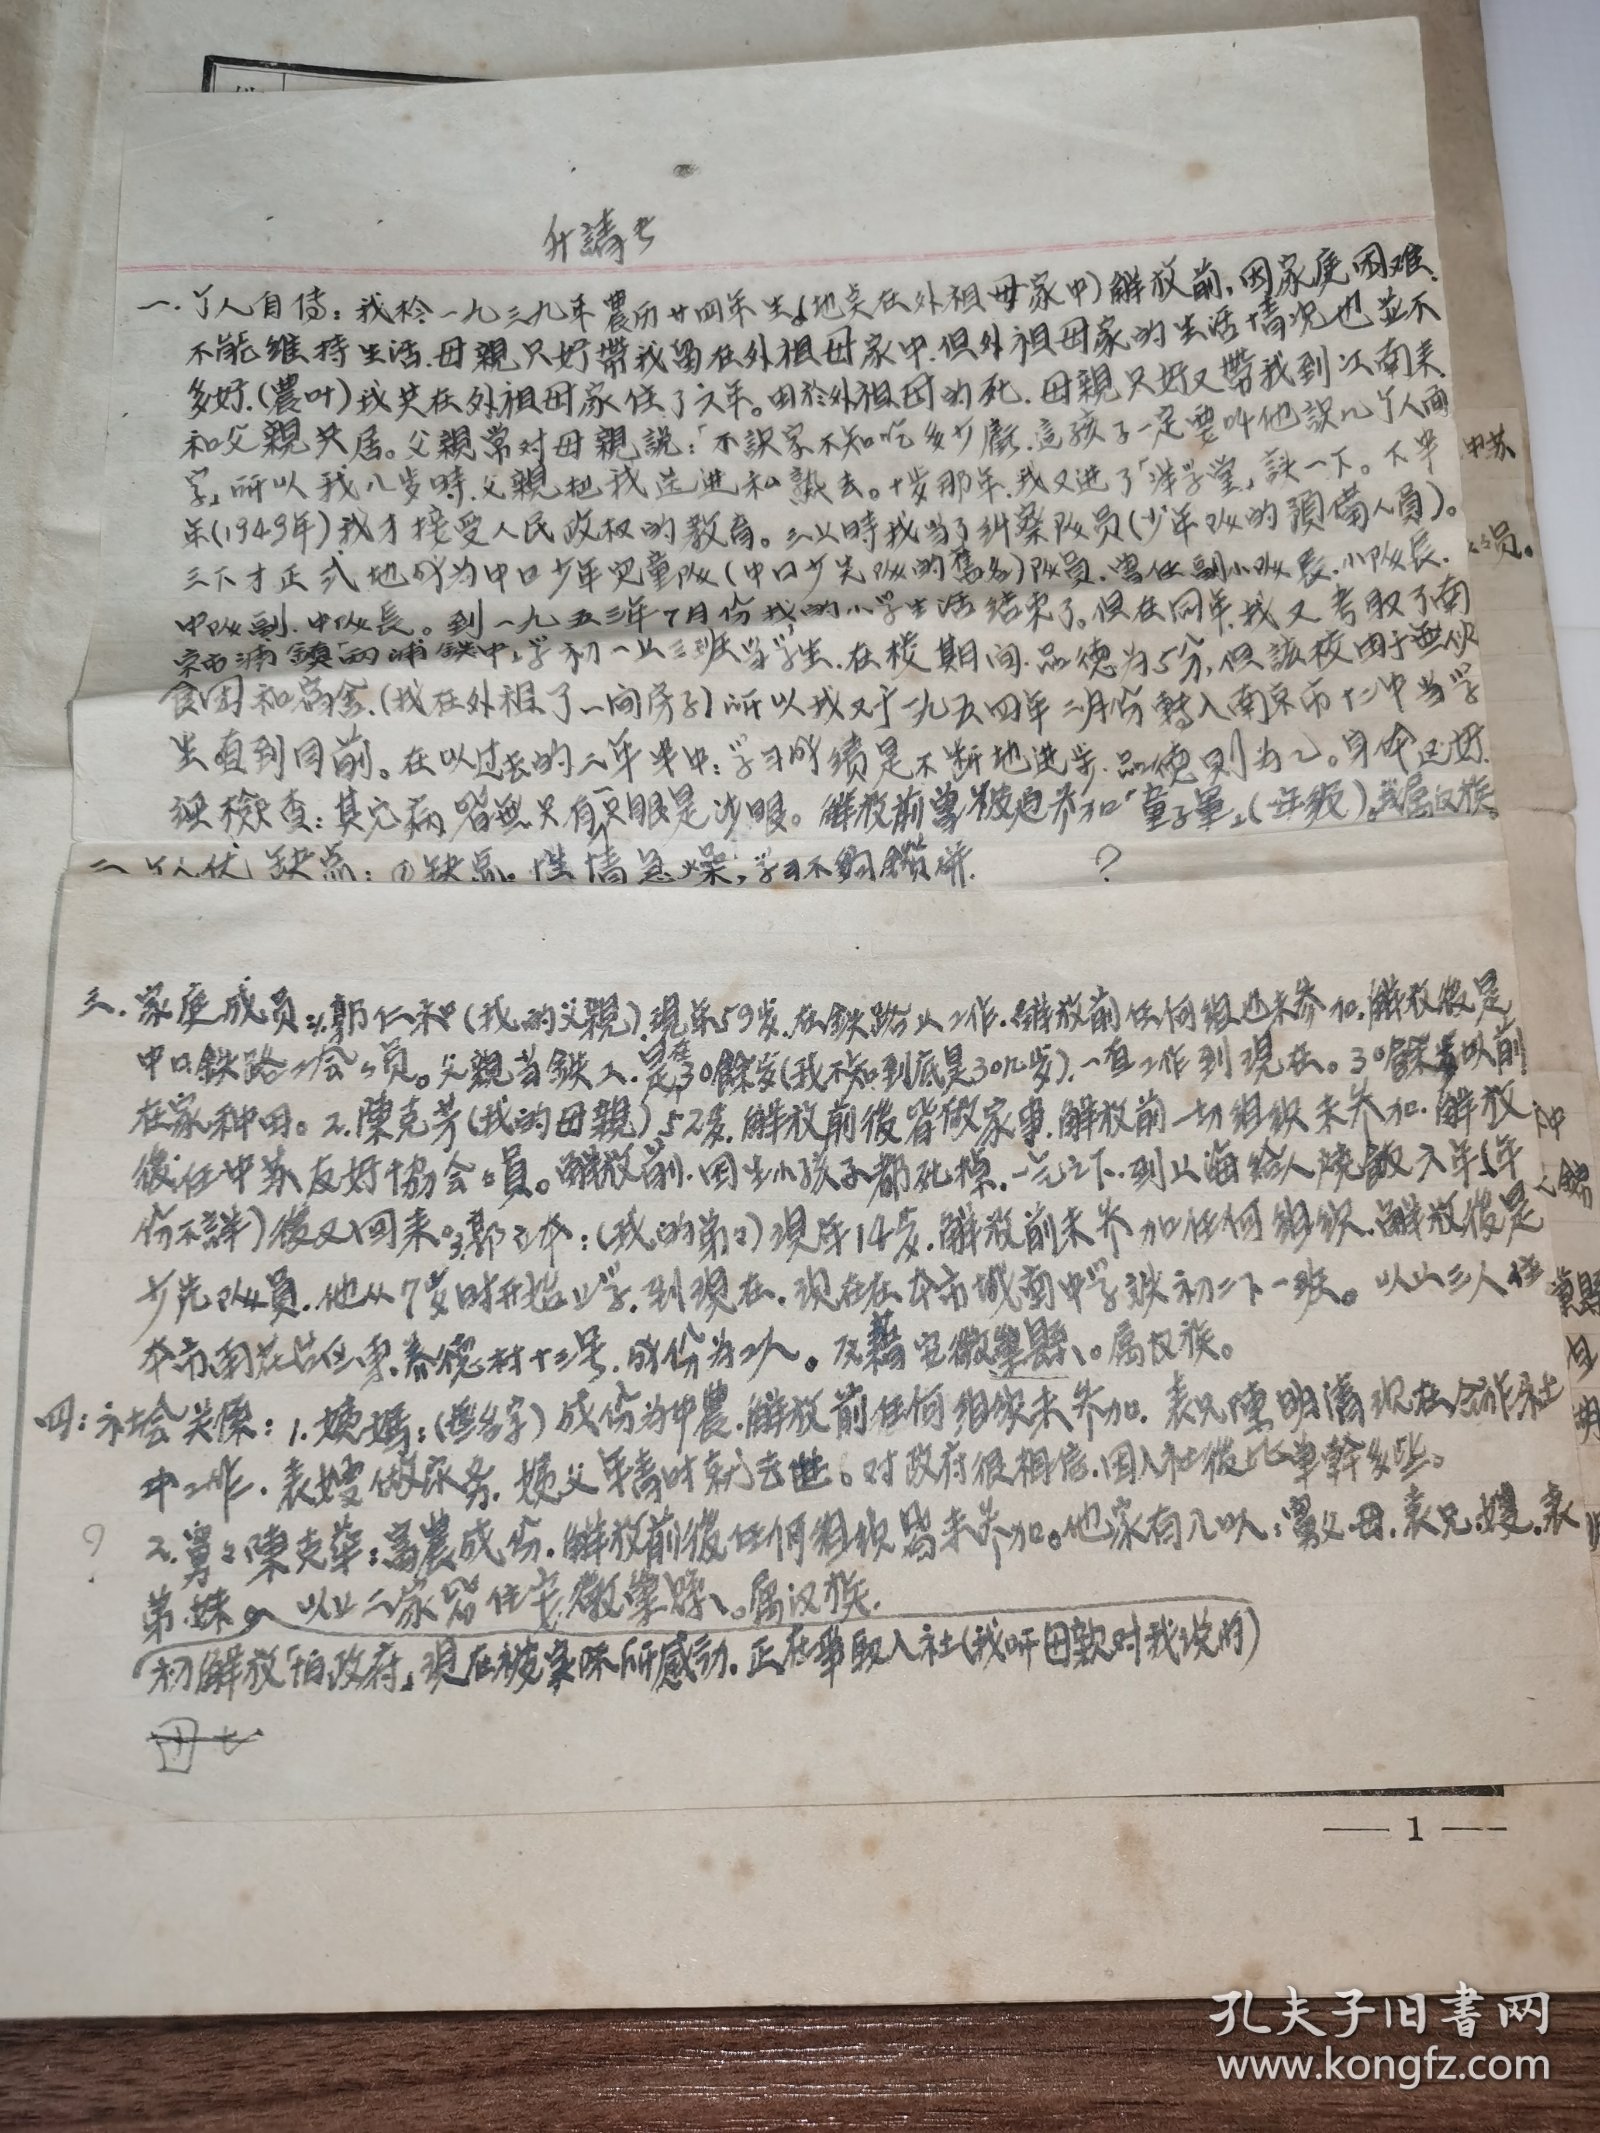 升請书
一.个人自传:我於一九三九年農历廿四年生(地点在外祖母家中)解放前,因家庭困难,
不能維持生活.母親只好帶我留在外祖母家中.但外祖母家的生活情况也並不
多好.(農叶)我共在外祖母家住了六年。由於外祖母的死.母親只好又帶我到江南来.
和父親共居。父親常对母親說:「不識字不知吃多少虧.這孩子一定要叫他識几个人面
字」所以我八岁時.父親把我送進私熟去。十岁那年.我又进了「洋学堂」讀一下。下半
年(1949年)我才接受人民政权的教育。三上時我当了糾察队员(少年队的預備人員)。
三下才正式地成为中囗少年児童队(中囗少先队的舊名)队員.曾任副小队長.小队長.
中队副.中队長。到一九五三年7月份我的小学生活结束了.但在同年.我又考取了南
京市浦鎮的浦鉄中学初一上三班当学生.在校期间.品德为5分,但該校由于無伙
食团和宿舍.(我在外租了一间房子)所以我又于一九五四年二月份轉入南京市十二中当学
生直到目前。在以过去的二年半中:学习成績是不断地进步.品德則为乙。身体还好.
經檢查:其它病皆無只有一只眼是沙眼。解放前曾被迫参加「童子軍」(一年級)。我属汉族。
二 个人优缺点:①缺点。性情急燥,学习不夠鑽研.
?
三.家庭成员:1.郭仁和(我的父親).現年59岁.在鉄路上工作.解放前任何组也未参加.解放後是
中囗鉄路工会会員。父親当鉄工.是在30餘岁(我不知到底是30几岁).一直工作到現在。30餘岁以前
在家种田。2.陳克芳(我的母親)52岁.解放前後皆做家事.解放前一切组织未参加.解放
後任中苏友好協会会員。解放前.因生小孩子都死掉.一气之下.到上海给人燒飯六年(年
份不詳)後又回来。3.郭立本:(我的弟弟)現年14岁.解放前未参加任何组织.解放後是
少先队員.他从7岁时开始上学.到現在.現在在本市城南中学读初二下一班。以上三人住
本市 十三号.成份为工人。 安徽 縣。属汉族。
四:社会关係:1.姨媽:(無名字)成份为中農.解放前任何组织未参加.表兄陳明清現在合作社
中工作.表嫂做家务.姨父年青时就去世。对政府很相信.因入社後比單幹多些。
2.舅舅陳克華:富農成份.解放前後任何组织皆未参加。他家有八口人:舅父.母.表兄.嫂.表
弟.妹 以上二家皆住安徽 縣。属汉族.
初解放「怕政府」現在被实际所感动.正在争取入社(我听母親对我说的)
?
中苏
员。
— 1 —
孔夫子旧书网
www.kongfz.com